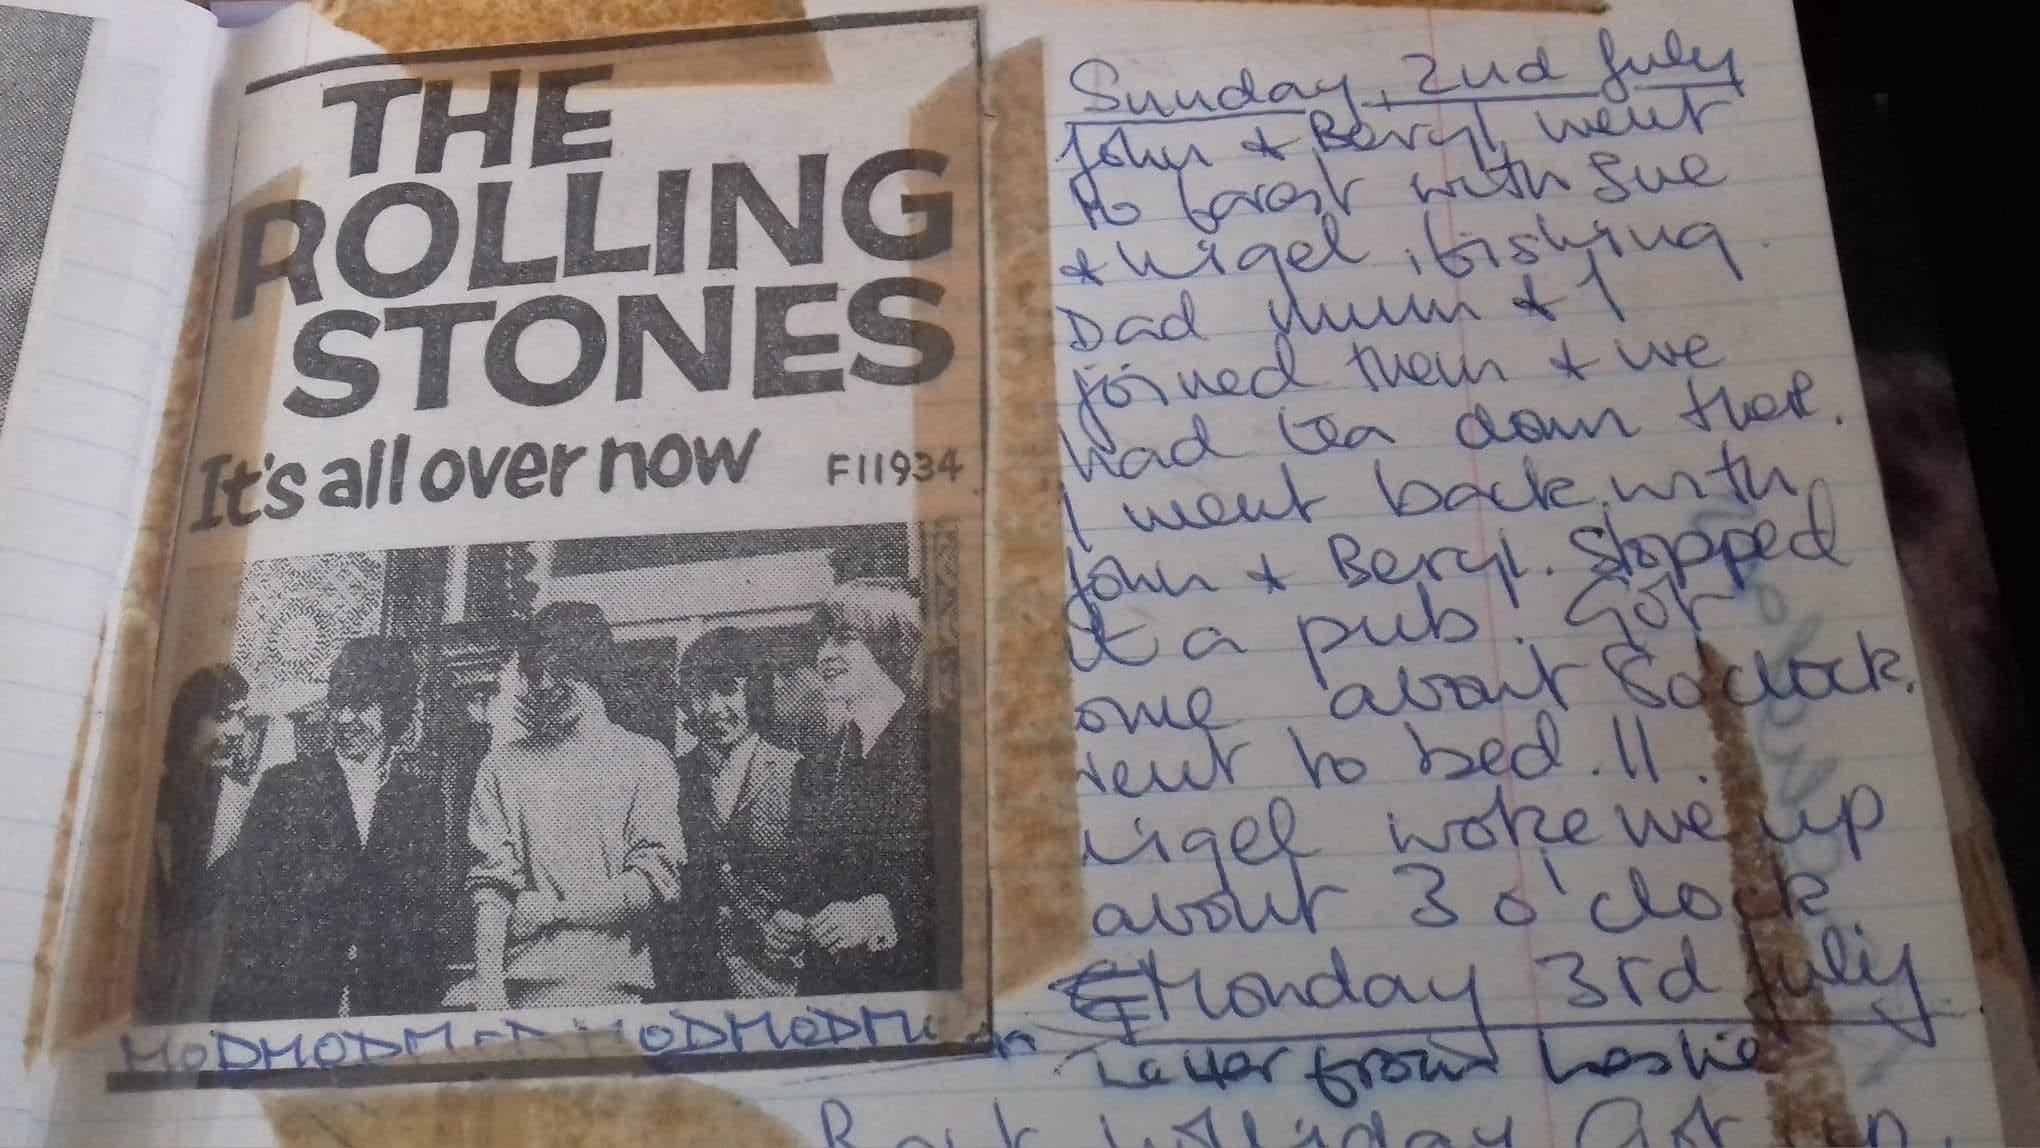 THE
ROLLING
STONES
It's all over now F11934
MODMODMOD MODMODM
Sunday, 2nd July
John & Beryl went
to forest with Sue
& Nigel, fishing.
Dad mum & I
joined them & we
had tea down there.
I went back with
John & Beryl. Stopped
at a pub. Got
ome about 8 o'clock.
went to bed. 11.
Nigel woke me up
about 3 o'clock
Monday 3rd July
Letter from Leslie
holliday Got up